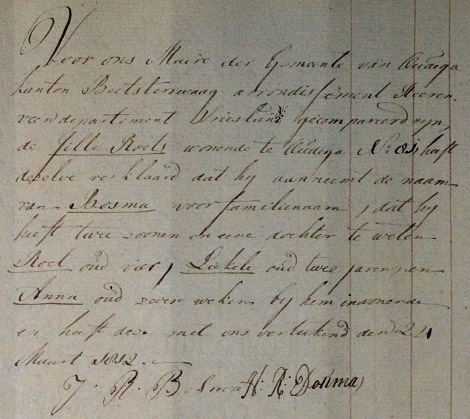 Voor ons Maire der Gemeente van Oudega
kanton Beetsterzwaag arrondissement Heeren-
veen departement Vriesland gecompareerd zyn-
de Jelle Roels wonende te Oudega N: 81 heeft
dezelve verklaard dat hy aanneemt de naam
van Bosma voor familienaam, dat hy
heeft twee zoonen en eene dochter te weten
Roel oud vier, Liekele oud twee jaren, en
Anna oud zeven weken by hem inwonende
en heeft deze met ons vertekend den 22
Maart 1812.
J. R. B. H: R: Dosma